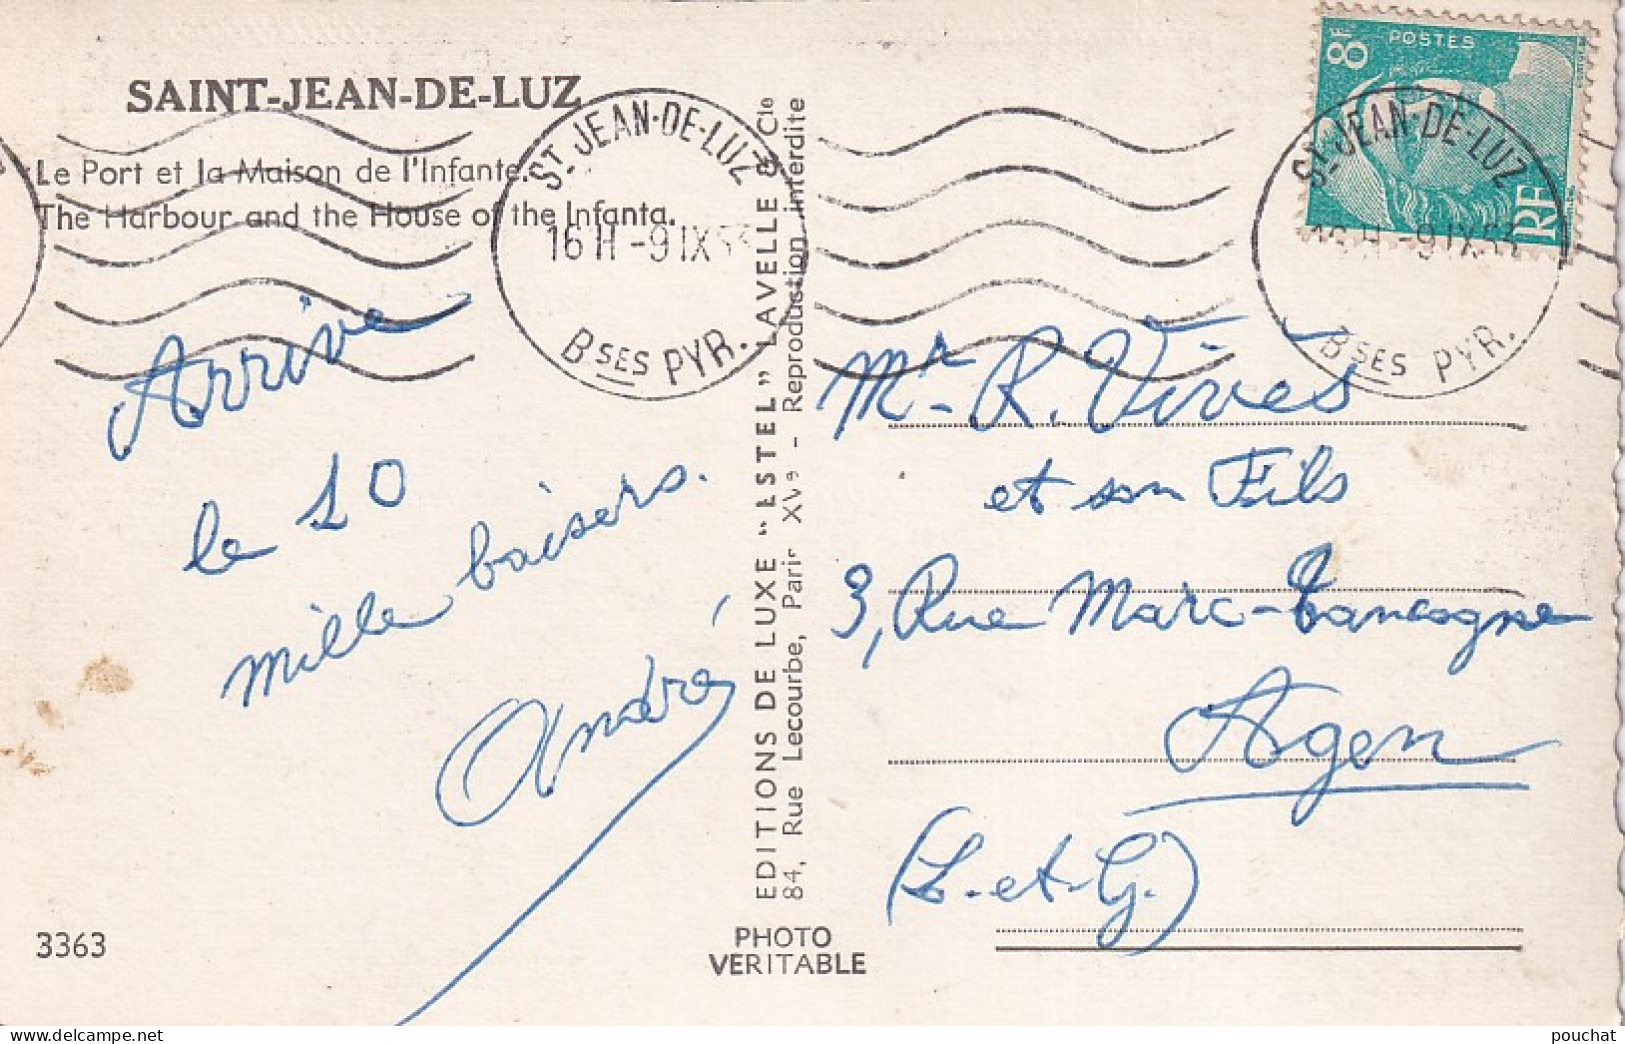 SAINT-JEAN-DE-LUZ
Le Port et la Maison de l'Infante.
The Harbour and the House of the Infanta.
ST JEAN-DE-LUZ
16 H -9 IX
BSES PYR.
Arrive
le 10
mille baisers.
André
3363
EDITIONS DE LUXE "ESTEL" LAVELLE & Cie
84, Rue Lecourbe, Paris XVe - Reproduction interdite
PHOTO
VERITABLE
8F
POSTES
RF
ST JEAN-DE-LUZ
16 H -9 IX
BSES PYR.
Mr. R. Vivès
et son Fils
3, Rue Marc-Tancogne
Agen
(L.-et-G.)
pouchat